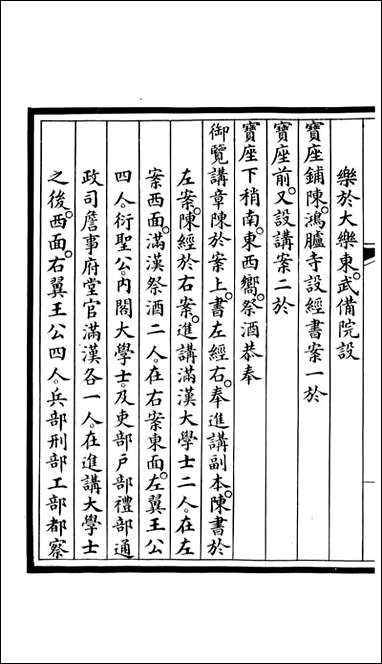 樂於大樂東。武備院設
寶座鋪陳。鴻臚寺設經書案一於
寶座前。又設講案二於
寶座下稍南。東西嚮。祭酒恭奉
御覽講章陳於案上。書左經右。奉進講副本。陳書於
左案。陳經於右案。進講滿漢大學士二人。在左
案西面。滿漢祭酒二人。在右案東面。左翼王公
四人。衍聖公。內閣大學士。及吏部戶部禮部通
政司詹事府堂官滿漢各一人。在進講大學士
之後。西面。右翼王公四人。兵部刑部工部都察